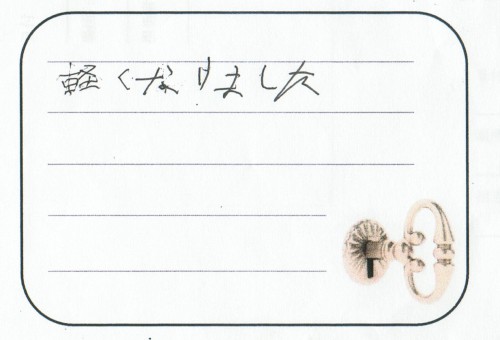 軽くなりました